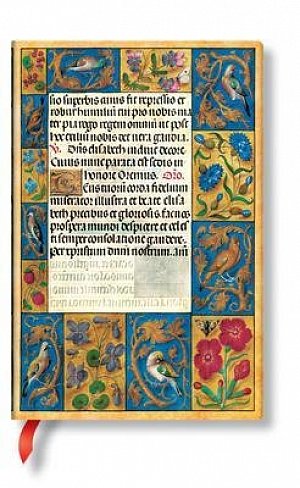 suo superbis fit repressio et
robur humilium tu pro nobis ma
ter pia rogo regem omnium ut post
hoc exilium nobis det vera gaudia.
V. Dns elisabeth induit decore
Cuius parata est sedis in
honore Oremus. Oro.
Tuorum corda fidelium
miserator illustra et beate elisa
beth precibus et gloriosis fac nos
prospera mundi despicere et celes
ti semper consolatione gaudere.
Per xpistum dnm nostrum. am